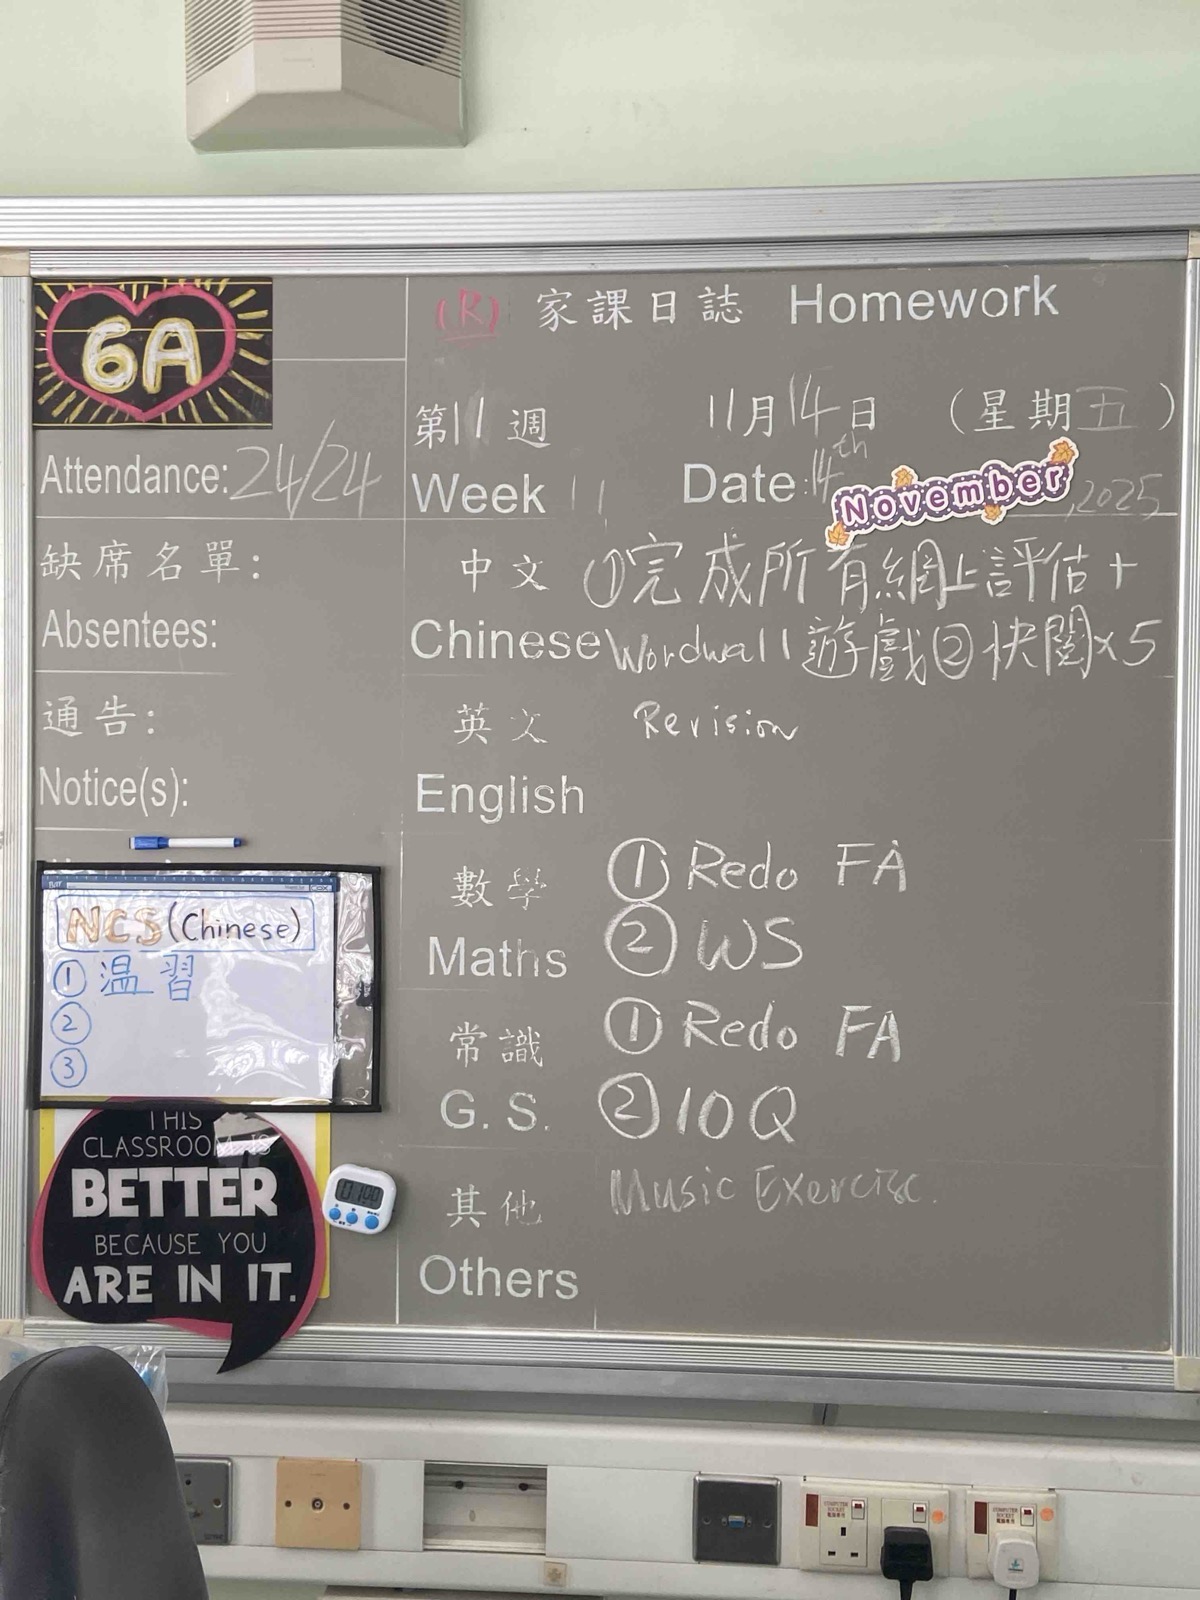 6A
(R) 家課日誌 Homework
第11週 11月14日 (星期五)
Attendance: 24/24
Week 11 Date: 14th November, 2025
缺席名單:
Absentees:
中文 ①完成所有網上評估+
Chinese Wordwall遊戲②快閱x5
通告:
Notice(s):
英文 Revision
English
數學 ① Redo FA
Maths ② WS
NCS (Chinese)
① 温習
②
③
常識 ① Redo FA
G. S. ② 10Q
其他 Music Exercise.
Others
THIS
CLASSROOM IS
BETTER
BECAUSE YOU
ARE IN IT.